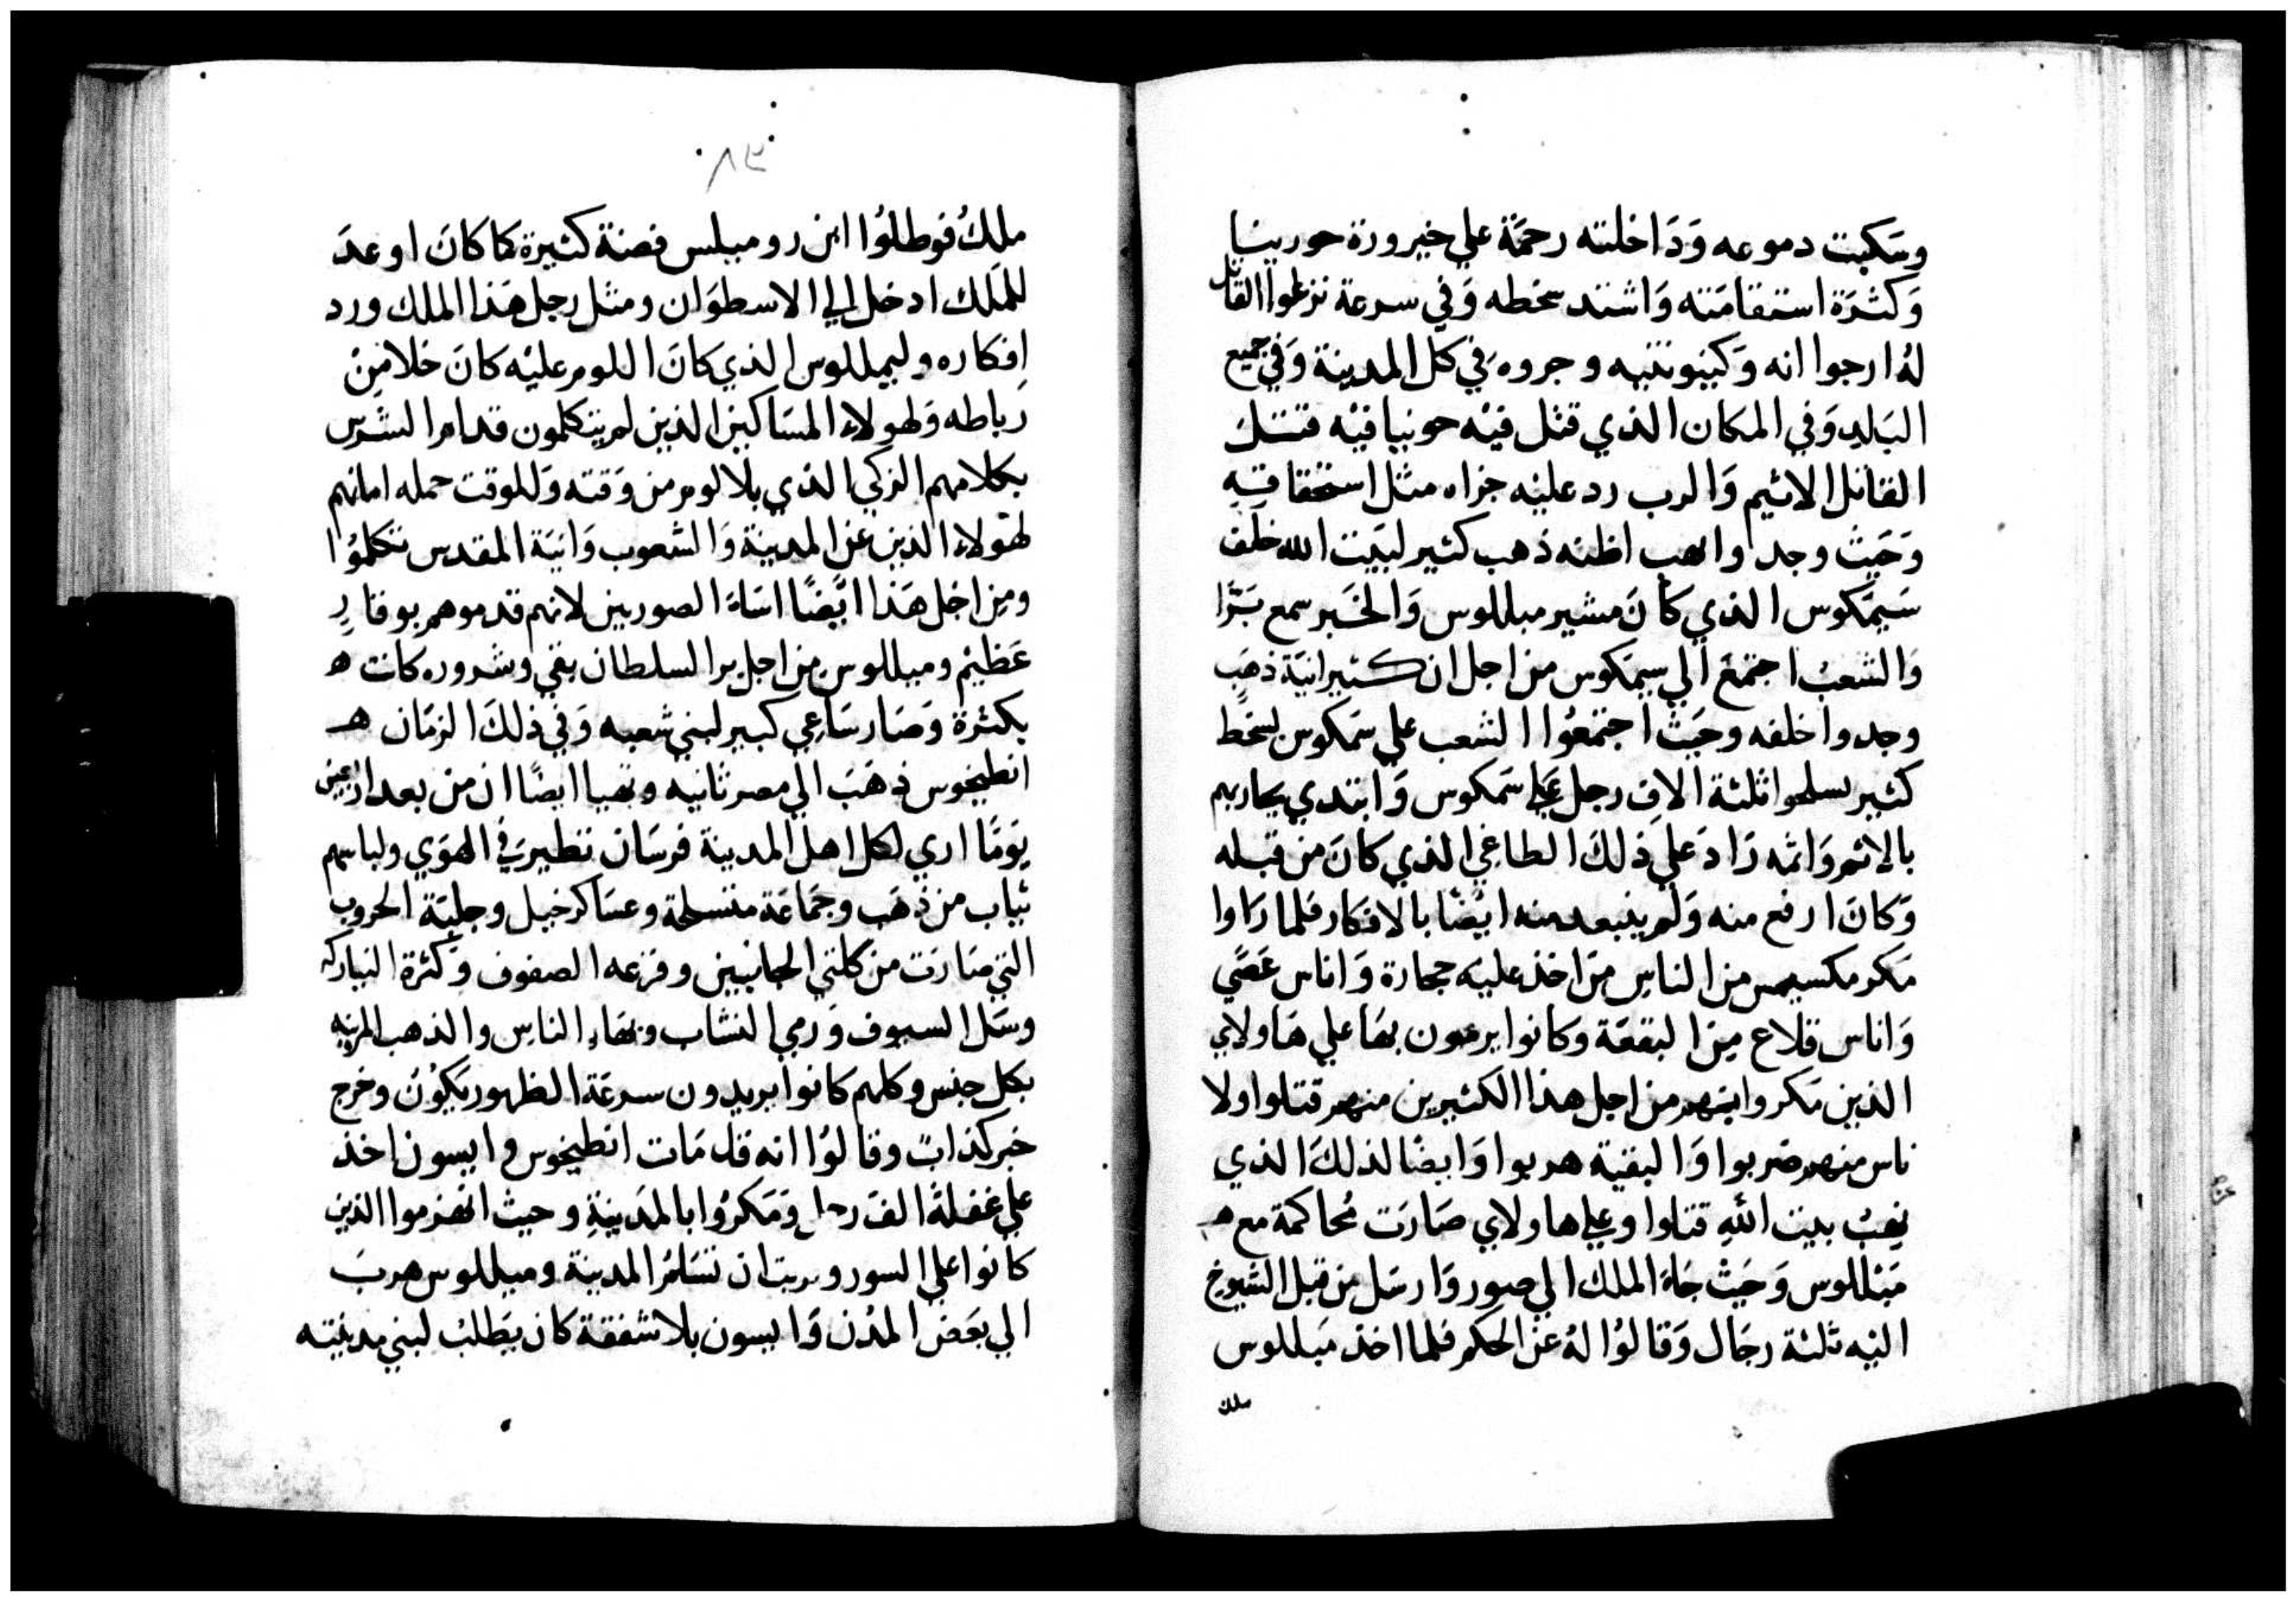 وسكبت دموعه وَدَاخلته رحمَة علي خيرورة حورينا
وَكثرَة استقامَته وَاشتد سخطه وَفي سرعة نزعوا القاتل
لهُ ارجوا انه وَكينونتيه وجروه في كل المدينة وَفي جميع
البَلدِ وَفي المكان الذي قتل فيْه حونيا فيْه قتل
القاتل الاثيم وَالرب رد عليْه جزاه مثل استحقاقه
وَحَيث وجد واهب اظنه ذهب كثير لبَيت الله خلف
سَيمَكوس الذي كانَ مشير ميللوس وَالخبَر سمع بَرَّا
وَالشعبُ اجتمَعَ الي سيمَكوس من اجل ان كثير انيَة ذهَب
وجدوا خلفه وحَيثُ اجتمعُوا الشعب علي سَمكوس بسخط
كثير بسلحوا ثلثة الافِ رجل علي سَمكوس وَابتدي يحاربهم
بالاثم وَاثمه زادَ علي ذلكَ الطاغي الذي كانَ من قبله
وَكانَ ارفع منه وَلم ينبعد منه ايْضًا بالافكار فلما رَاوا
مَكر مكسيمس من الناس مَن اخذ عليْه حجارة وَاناس عَصَي
وَاناس قلاع مِن البقعَة وكانوا يرمون بهَا علي هَاولاي
الذين مَكروا بهم من اجل هذا الكثيرين منهم قتلوا ولا
ناس منهم ضربوا وَالبقية هربوا وَايضًا لذلكَ الذي
نهبَ بيت اللهِ قتلوا وعلي هاولاي صَارَت مُحاكمة مع
مَيللوس وَحَيثُ جَاءَ الملك الي صور وَارسَل من قبل الشيوخ
اليْه ثلثة رجَال وَقالوُا لهُ عن الحكم فلما اخذ مَيللوس
ملك
٨٣
ملكُ فوطلوُا ابن روميلس فضة كثيرة كمَا كانَ اوعدَ
للمَلك ادخل الي الاسطوَان ومثل رجل هَذا الملك ورد
افكاره وليميللوس الذي كانَ اللوم عليْه كانَ خلا مِن
رَباطه وَلهولاء المسَاكين الذين لم يتكلمون قدام الشرس
بكلامهم الزكي الذي بلا لوم من وَقته وَللوقت حمله اماتهم
لهَولاء الذين عن المدينة وَالشعوب وَانيَة المقدس تكلموُا
ومِن اجل هَذا ايْضًا اسَاءَ الصوريين لانهم قدموهم بوقارٍ
عَظيْم وميللوس من اجل بر السلطان بقي وشروره كانت
بكثرَة وَصَار سَاعي كبير لبني شعبه وَفي ذلكَ الزمَان
انطيخوس ذهَبَ الي مصر ثانيه وتهيا ايضًا ان من بعد اربعين
يَومًا اري لكل اهل المدينة فرسَان تطير في الهوَي ولباسهم
ثيَاب من ذهَب وجمَاعَة متسلحة وعسَاكر خيل وجلبَة الحروب
التي صَارَت من كلتي الجانبين وفزعه الصفوف وَكثرة النيازك
وسَل السيوف وَرمي النشاب وبهَاء الناس والذهب المزينه
بكل جنس وكلهم كانوا يريدون سرعَة الظهور يَكوُن وخرج
خبر كذابٌ وقالوُا انه قد مَات انطيخوس وايسون اخذ
علي غفلة الفَ رجل وَمَكروُا بالمَدينةِ وحيث انهزموا الذين
كانوا علي السور وربت ان تسَلم المدينة وميللوس هربَ
الي بعَض المدُن وَايسون بلا شفقة كان يَطلبْ لبني مدينته